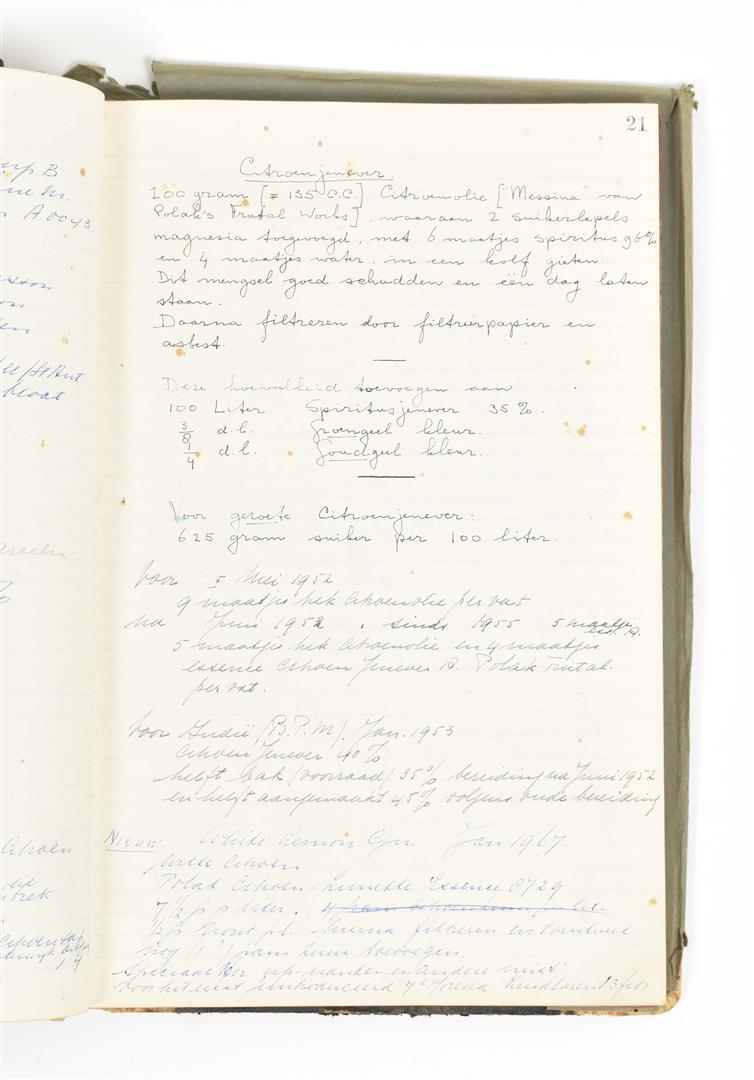 21
Citroenjenever.
100 gram [= 135 C.C.] Citroenolie ["Messina" van
Polak's Frutal Works], waaraan 2 suikerlepels
magnesia toegevoegd, met 6 maatjes spiritus 96%
en 4 maatjes water. in een kolf gieten.
Dit mengsel goed schudden en één dag laten
staan.
Daarna filtreren door filtreerpapier en
asbest.
Deze hoeveelheid toevoegen aan
100 Liter Spiritusjenever 35%.
3/8 d.l. Groengeel kleur.
1/4 d.l. Goudgeel kleur.
Voor gezoete Citroenjenever:
625 gram suiker per 100 liter.
Voor Mei 1952
9 maatjes trek citroenolie per vat
na Juni 1952 . sinds 1955 5 maatjes
ess. A.
5 maatjes trek citroenolie en 4 maatjes
essence Citroen Jenever A. Polak Frutal.
per vat.
Voor Indië (B.P.M). Jan. 1953
Citroen Jenever 40%
helft bak (voorraad) 35% bereiding na Juni 1952
en helft aangemaakt 45% volgens oude bereiding
Nieuw White Lemon Gin Jan 1967
Witte Citroen
Polak Citroen- Essence 8729
7 1/2 p liter.
filtreren en eventueel
nog toevoegen.
Speciaal en andere
voor het eerst geintroduceerd
erp B
A 0043
Citroen
olie
trek
1:4